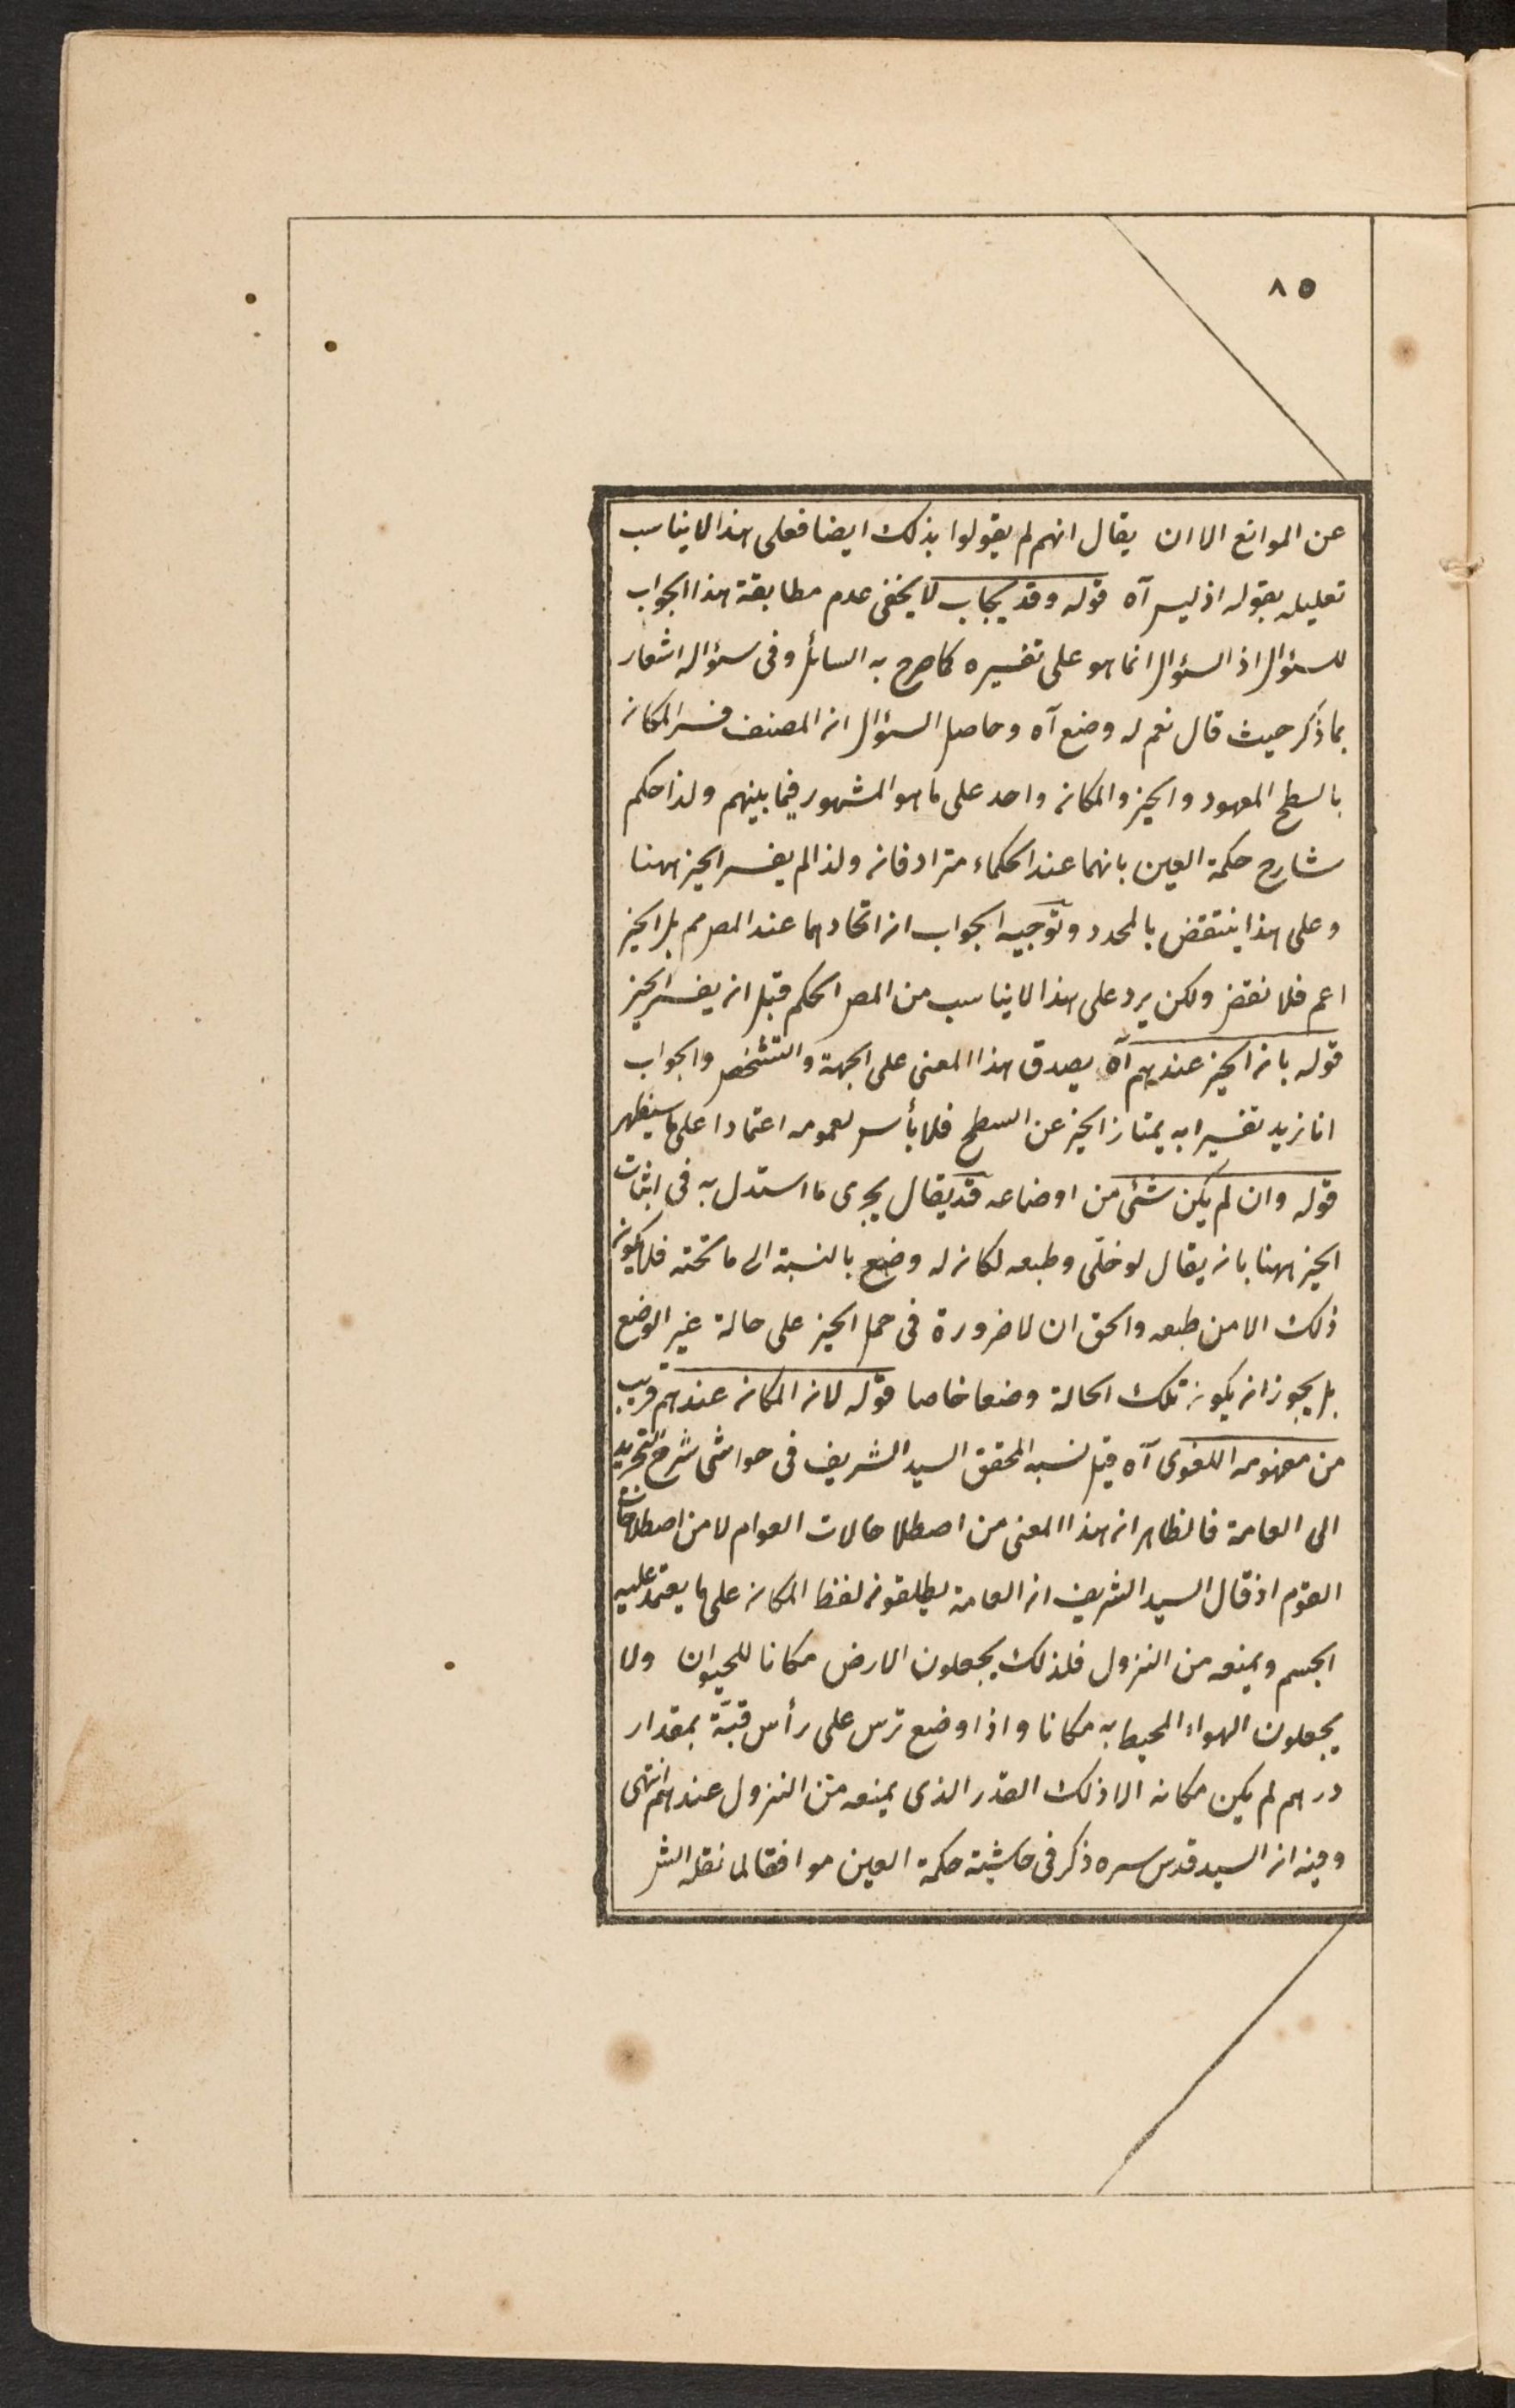 ٨٥
عن الموانع الا ان يقال انهم لم يقولوا بذلك ايضا فعلى هذا لا يناسب
تعليله بقوله اذ ليس آه قوله وقد يجاب لا يخفى عدم مطابقة هذا الجواب
للسؤال اذ السؤال انما هو على تفسيره كما صرح به السائل وفى سؤاله اشعار
بما ذكر حيث قال نعم له وضع آه وحاصل السؤال ان المصنف فسر المكان
بالسطح المعهود والحيز والمكان واحد على ما هو المشهور فيما بينهم ولذا حكم
شارح حكمة العين بانهما عند الحكماء مترادفان ولذا لم يفسر الحيز ههنا
وعلى هذا ينتقض بالمحدد وتوجيه الجواب ان اتحادهما عند المص مم بل الحيز
اعم فلا نقض ولكن يرد على هذا لا يناسب من المص الحكم قبل ان يفسر الحيز
قوله بان الحيز عندهم آه يصدق هذا المعنى على الجهة والتشخص والجواب
انا نريد تفسيرا به يمتاز الحيز عن السطح فلا بأس لعمومه اعتمادا على ما سيظهر
قوله وان لم يكن شئ من اوضاعه قد يقال يجرى ما استدل به فى اثبات
الحيز ههنا بان يقال لو خلّى وطبعه لكان له وضع بالنسبة الى ما تحته فلا يكون
ذلك الا من طبعه والحق ان لا ضرورة فى حمل الحيز على حالة غير الوضع
بل يجوز ان يكون تلك الحالة وضعا خاصا قوله لان المكان عندهم قريب
من مفهومه اللغوى آه قيل نسبه المحقق السيد الشريف فى حواشى شرح التجريد
الى العامة فالظاهر ان هذا المعنى من اصطلاحات العوام لا من اصطلاحات
القوم اذ قال السيد الشريف ان العامة يطلقون لفظ المكان على ما يعتمد عليه
الجسم ويمنعه من النزول فلذلك يجعلون الارض مكانا للحيوان ولا
يجعلون الهواء المحيط به مكانا واذا وضع ترس على رأس قبّة بمقدار
درهم لم يكن مكانه الا ذلك القدر الذى يمنعه من النزول عندهم انتهى
وفيه ان السيد قدس سره ذكر فى حاشية حكمة العين موافقا لما نقله الش